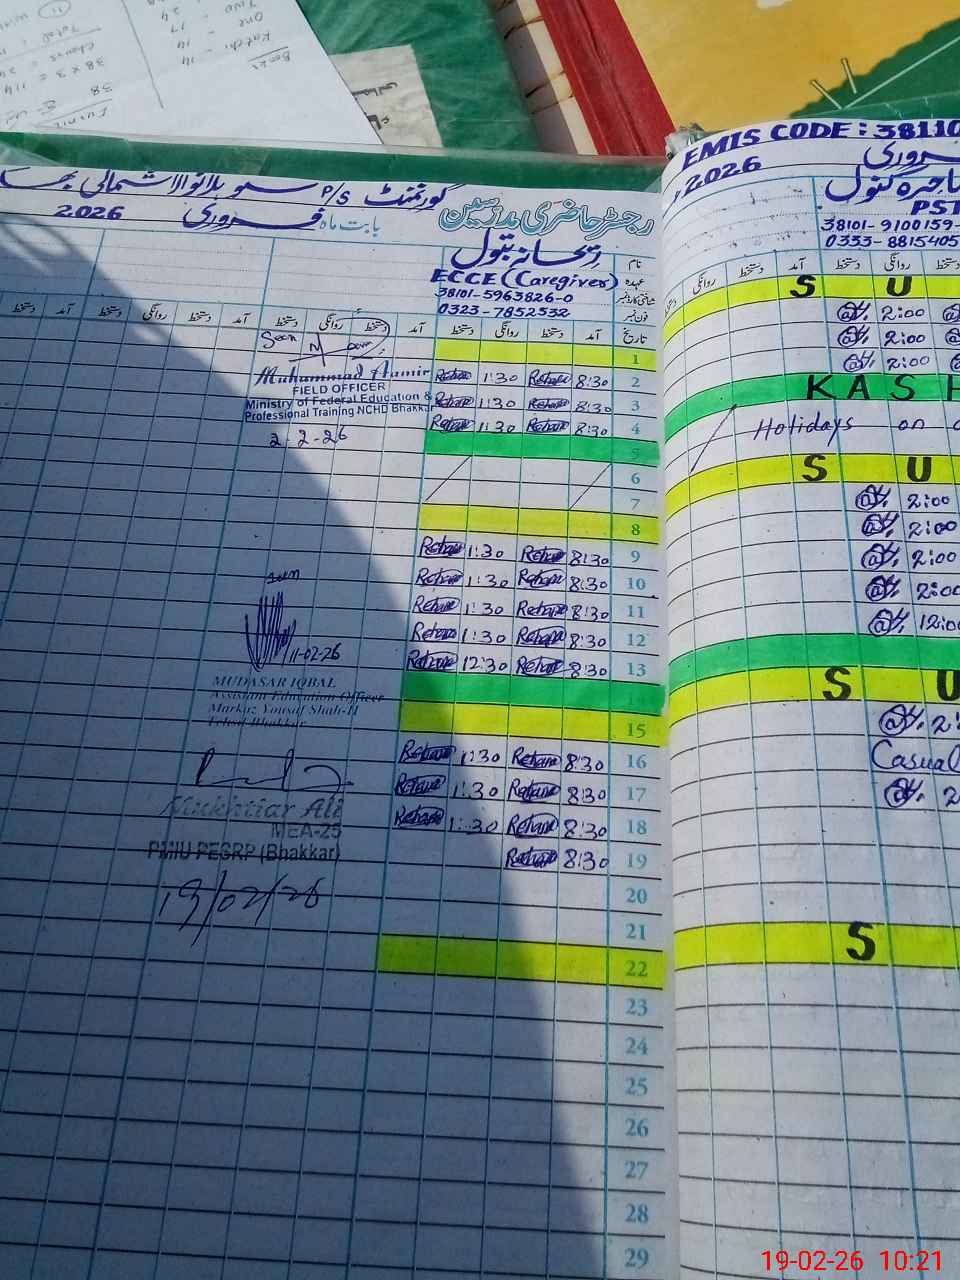 Two - 24
One - 17
Katchi - 14
Boxes
Total :
chairs = 24
38 x 3 = 114
38
گورنمنٹ P/S
رجسٹر حاضری مدرسین
بابت ماہ فروری 2026
نام ریحانہ بتول
عہدہ ECCE (Caregiver)
شناختی کارڈ نمبر 38101-5963826-0
فون نمبر 0323-7852532
تاریخ آمد دستخط روانگی دستخط آمد دستخط روانگی دستخط آمد دستخط روانگی دستخط آمد
1
2 8:30 Rehana 1:30 Rehana
3 8:30 Rehana 1:30 Rehana
4 8:30 Rehana 1:30 Rehana
5
6
7
8
9 8:30 Rehana 1:30 Rehana
10 8:30 Rehana 1:30 Rehana
11 8:30 Rehana 1:30 Rehana
12 8:30 Rehana 1:30 Rehana
13 8:30 Rehana 12:30 Rehana
14
15
16 8:30 Rehana 1:30 Rehana
17 8:30 Rehana 1:30 Rehana
18 8:30 Rehana 1:30 Rehana
19 8:30 Rehana
20
21
22
23
24
25
26
27
28
29
Seen
Muhammad Aamir
FIELD OFFICER
Ministry of Federal Education &
Professional Training NCHD Bhakkar
2-2-26
seen
11-02-26
MUDASAR IQBAL
Assistant Education Officer
Markaz Yousaf Shah-II
Tehsil Bhakkar
Mukhtiar Ali
MEA-25
PMIU PESRP (Bhakkar)
19/02/26
EMIS CODE : 38110
2026 فروری
PST
38101-9100159-
0333-8815405
آمد دستخط روانگی دستخط
روانگی دستخط
S U
2:00
2:00
2:00
KASH
Holidays on
S U
2:00
2:00
2:00
2:00
12:00
S U
2:
Casual
2
S
19-02-26 10:21